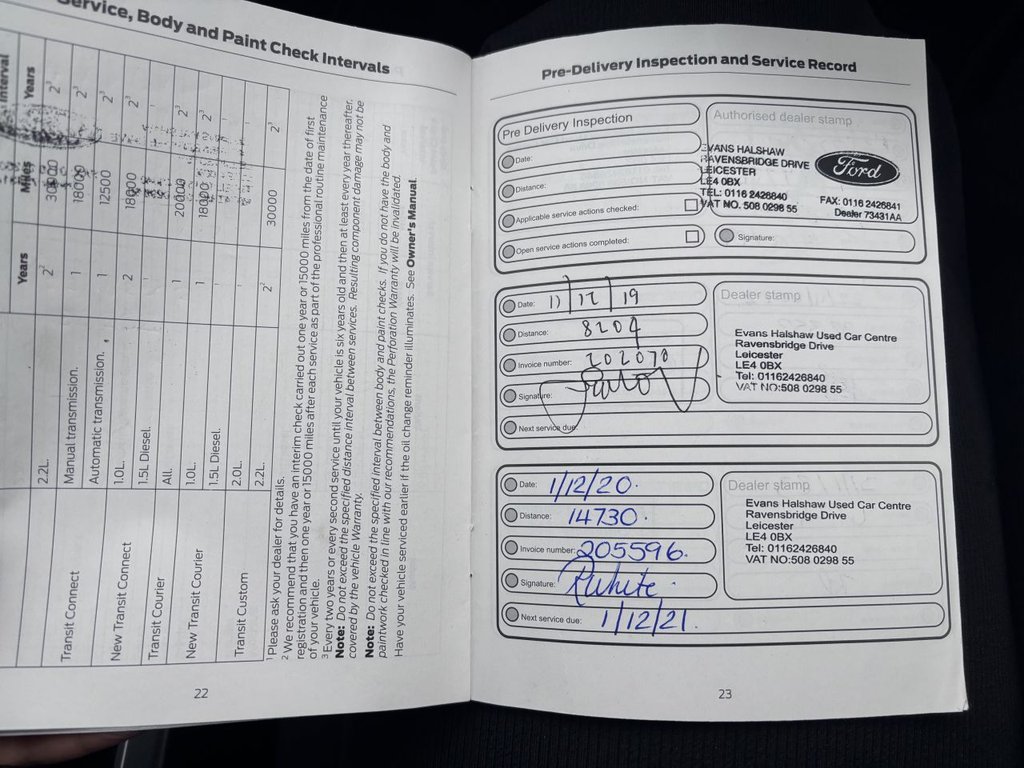 Service, Body and Paint Check Intervals
Interval
Years Miles Years
2.2L. 2² 30000 2³
Transit Connect Manual transmission. 1 18000 2³
Automatic transmission. 1 12500 2³
New Transit Connect 1.0L. 2 18000 2³
1.5L Diesel.
Transit Courier All. 1 20000 2³
New Transit Courier 1.0L. 1 18000 2³
1.5L Diesel.
Transit Custom 2.0L.
2.2L. 2² 30000 2³
¹ Please ask your dealer for details.
² We recommend that you have an interim check carried out one year or 15000 miles from the date of first
registration and then one year or 15000 miles after each service as part of the professional routine maintenance
of your vehicle.
³ Every two years or every second service until your vehicle is six years old and then at least every year thereafter.
Note: Do not exceed the specified distance interval between services. Resulting component damage may not be
covered by the vehicle Warranty.
Note: Do not exceed the specified interval between body and paint checks. If you do not have the body and
paintwork checked in line with our recommendations, the Perforation Warranty will be invalidated.
Have your vehicle serviced earlier if the oil change reminder illuminates. See Owner's Manual.
22
Pre-Delivery Inspection and Service Record
Pre Delivery Inspection
Date:
Distance:
Applicable service actions checked:
Open service actions completed:
Authorised dealer stamp
EVANS HALSHAW
RAVENSBRIDGE DRIVE
LEICESTER
LE4 0BX
TEL: 0116 2426840
VAT NO. 508 0298 55
Ford
FAX: 0116 2426841
Dealer 73431AA
Signature:
Date: 11/12/19
Distance: 8204
Invoice number: 202070
Signature:
Next service due:
Dealer stamp
Evans Halshaw Used Car Centre
Ravensbridge Drive
Leicester
LE4 0BX
Tel: 01162426840
VAT NO:508 0298 55
Date: 1/12/20.
Distance: 14730.
Invoice number: 205596.
Signature: R White.
Next service due: 1/12/21.
Dealer stamp
Evans Halshaw Used Car Centre
Ravensbridge Drive
Leicester
LE4 0BX
Tel: 01162426840
VAT NO:508 0298 55
23